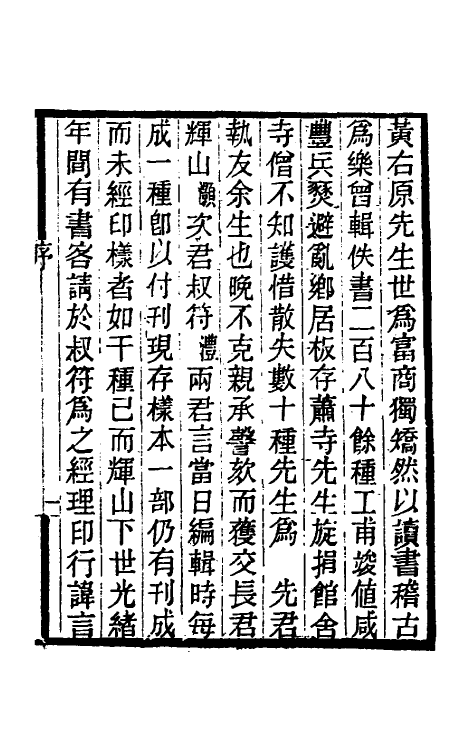 黃右原先生世爲富商獨矯然以讀書稽古
爲樂曾輯佚書二百八十餘種工甫竣値咸
豐兵燹避亂鄉居板存蕭寺先生旋捐館舍
寺僧不知護惜散失數十種先生爲 先君
執友余生也晚不克親承謦欬而獲交長君
輝山灝次君叔符澧兩君言當日編輯時每
成一種卽以付刊現存樣本一部仍有刊成
而未經印樣者如干種已而輝山下世光緒
年間有書客請於叔符爲之經理印行諱言
序
一